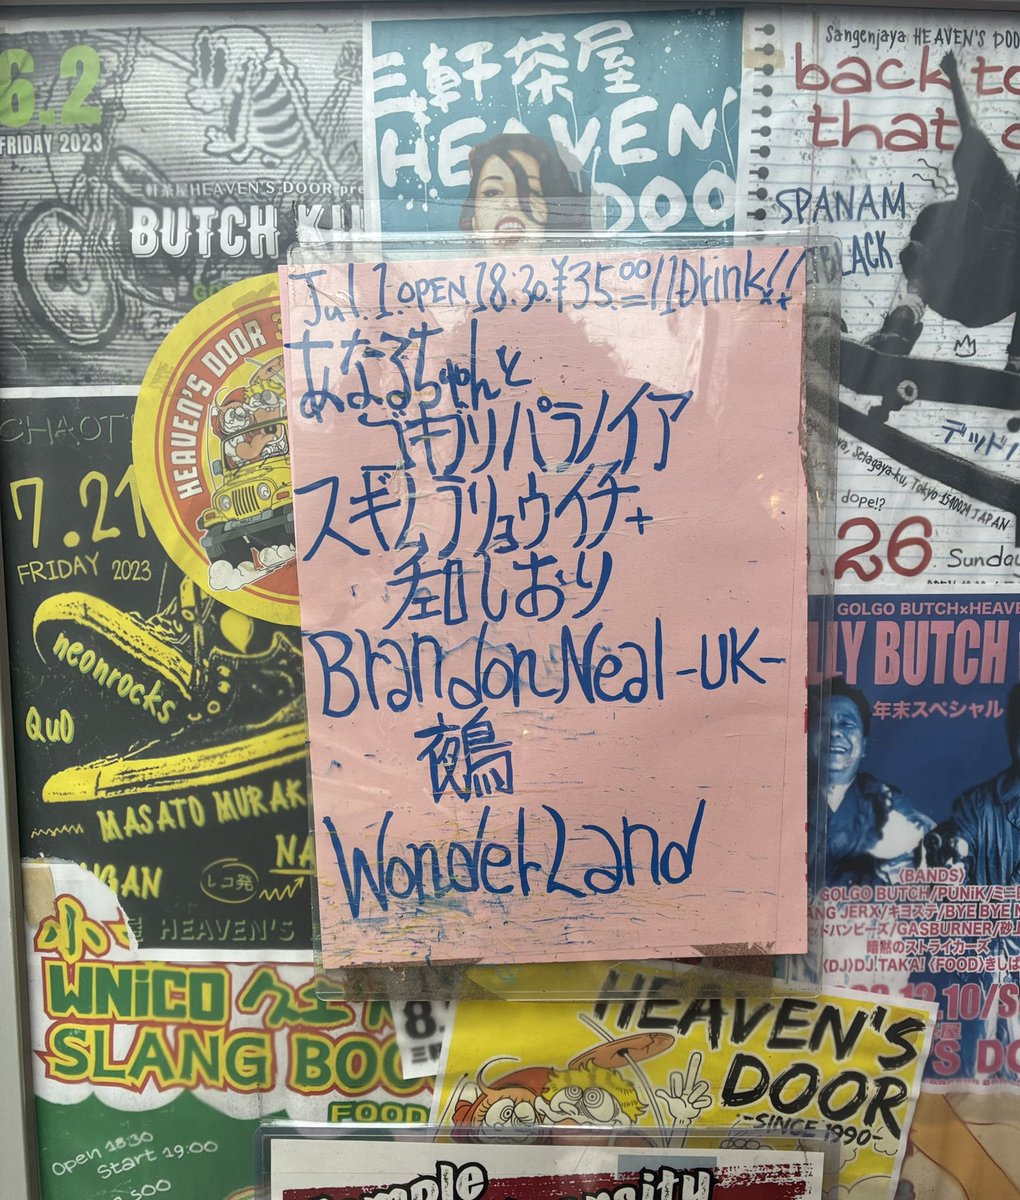 6.2
FRIDAY 2023
三軒茶屋HEAVEN'S DOOR pre
BUTCH
三軒茶屋
HEAVEN
DOO
Sangenjaya HEAVEN'S DOO
back to
that
SPANAM
BLACK
デッド
Setagaya-ku, Tokyo 1540024 JAPAN
dope!?
26 Sunday
HEAVEN'S DOOR 3
Jul.1.OPEN.18:30.¥35.00=//1Drink!!
あなるちゃんと
ゴキブリパラノイア
スギムラリョウイチ+
しおり
Brandon.Neal-UK-
鵺
WonderLand
CHAOT
7.21
FRIDAY 2023
neonrocks
QuO
MASATO MURAK
NGAN
NA
レコ発
HEAVEN'S
GOLGO BUTCH×HEAVE
LLY BUTCH
年末スペシャル
〈BANDS〉
GOLGO BUTCH/PUNiK/ミニ
ANG JERX/キヨステ/BYE BYE N
ッドバンビーズ/GASBURNER/砂
暗黙のストライカーズ
〈DJ〉DJ.TAKA! 〈FOOD〉きしば
12.10/S
S DO
WNiCO
SLANG BOO
FOOD
Open 18:30
Start 19:00
500
8.
HEAVEN'S
DOOR
-SINCE 1990-